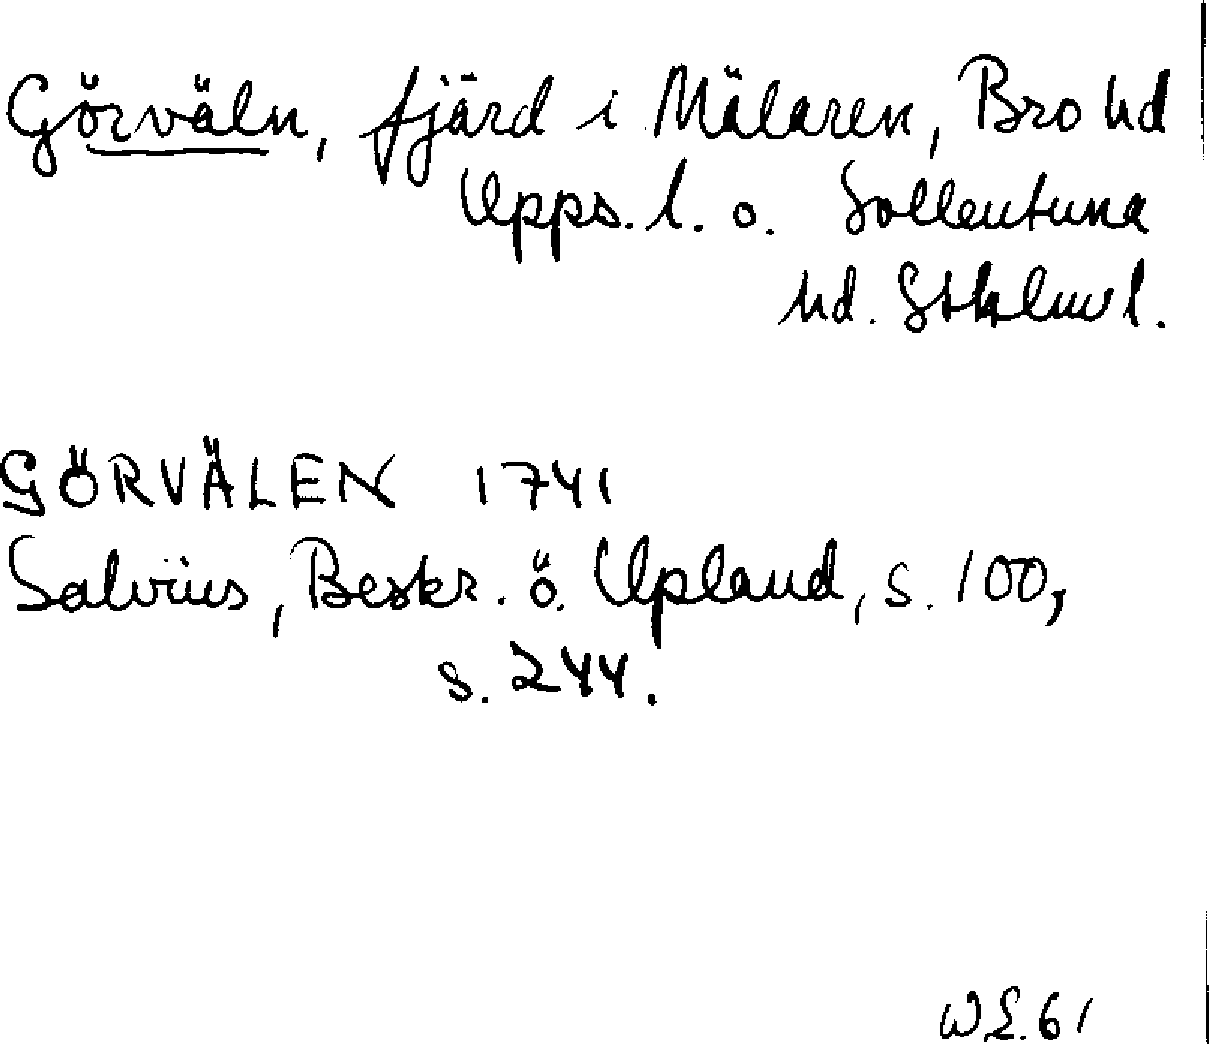 Görväln, fjärd i Mälaren, Bro hd
Upps. l. o. Sollentuna
hd. Sthlm l.
GÖRVÄLEN 1741
Salvius, Beskr. ö. Upland, s. 100,
s. 244.
WL.61